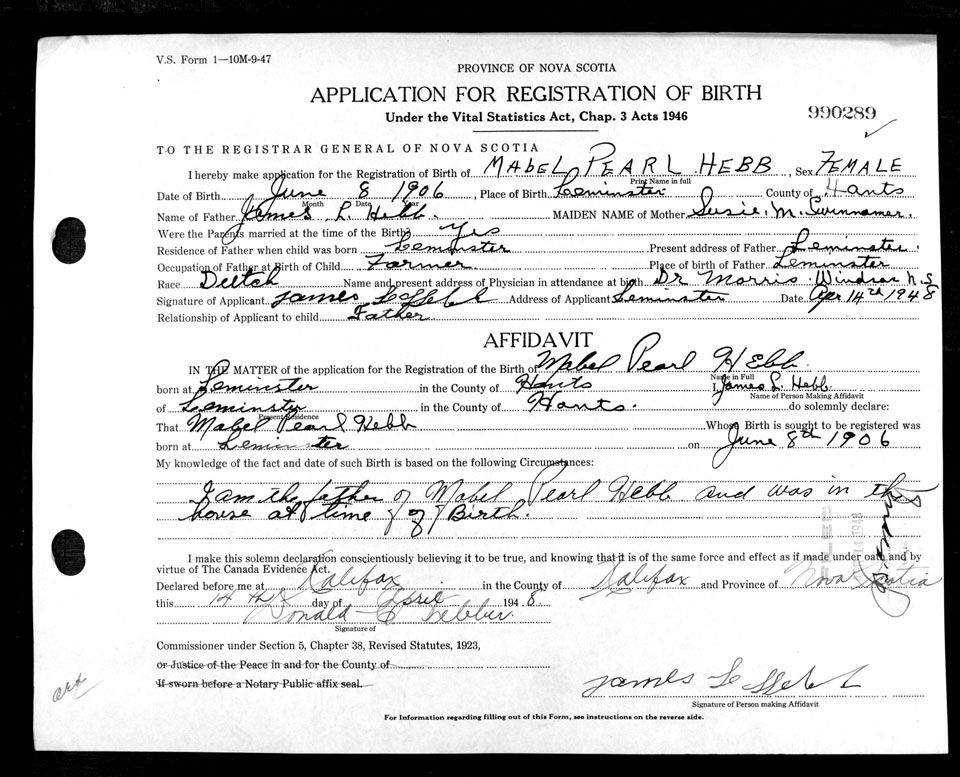 V.S. Form 1—10M-9-47
PROVINCE OF NOVA SCOTIA
APPLICATION FOR REGISTRATION OF BIRTH
Under the Vital Statistics Act, Chap. 3 Acts 1946
990289
TO THE REGISTRAR GENERAL OF NOVA SCOTIA
I hereby make application for the Registration of Birth of MABEL PEARL HEBB Sex FEMALE
Print Name in full
Date of Birth June 8 1906, Place of Birth Leminster County of Hants
Month Date
Name of Father James L. Hebb MAIDEN NAME of Mother Susie M. Swinnamer.
Were the Parents married at the time of the Birth? Yes
Residence of Father when child was born Leminster Present address of Father Leminster.
Occupation of Father at Birth of Child Farmer Place of birth of Father Leminster
Race Deutch Name and present address of Physician in attendance at birth Dr Morris Windsor N.S
Signature of Applicant James L Hebb Address of Applicant Leminster Date Apr 14th 1948
Relationship of Applicant to child Father
AFFIDAVIT
IN THE MATTER of the application for the Registration of the Birth of Mabel Pearl Hebb.
Name in Full
born at Leminister in the County of Hants I, James L. Hebb
Name of Person Making Affidavit
of Leminstr in the County of Hants. do solemnly declare:
Present Residence
That Mabel Pearl Hebb Whose Birth is sought to be registered was
born at Leminster on June 8th 1906
My knowledge of the fact and date of such Birth is based on the following Circumstances:
I am the father of Mabel Pearl Hebb and was in the
house at time of Birth.
I make this solemn declaration conscientiously believing it to be true, and knowing that it is of the same force and effect as if made under oath and by
virtue of The Canada Evidence Act.
Declared before me at Halifax in the County of Halifax and Province of Nova Scotia
this 14th day of April 1948.
Signature of
Commissioner under Section 5, Chapter 38, Revised Statutes, 1923,
or Justice of the Peace in and for the County of
If sworn before a Notary Public affix seal.
James L Hebb
Signature of Person making Affidavit
For Information regarding filling out of this Form, see instructions on the reverse side.